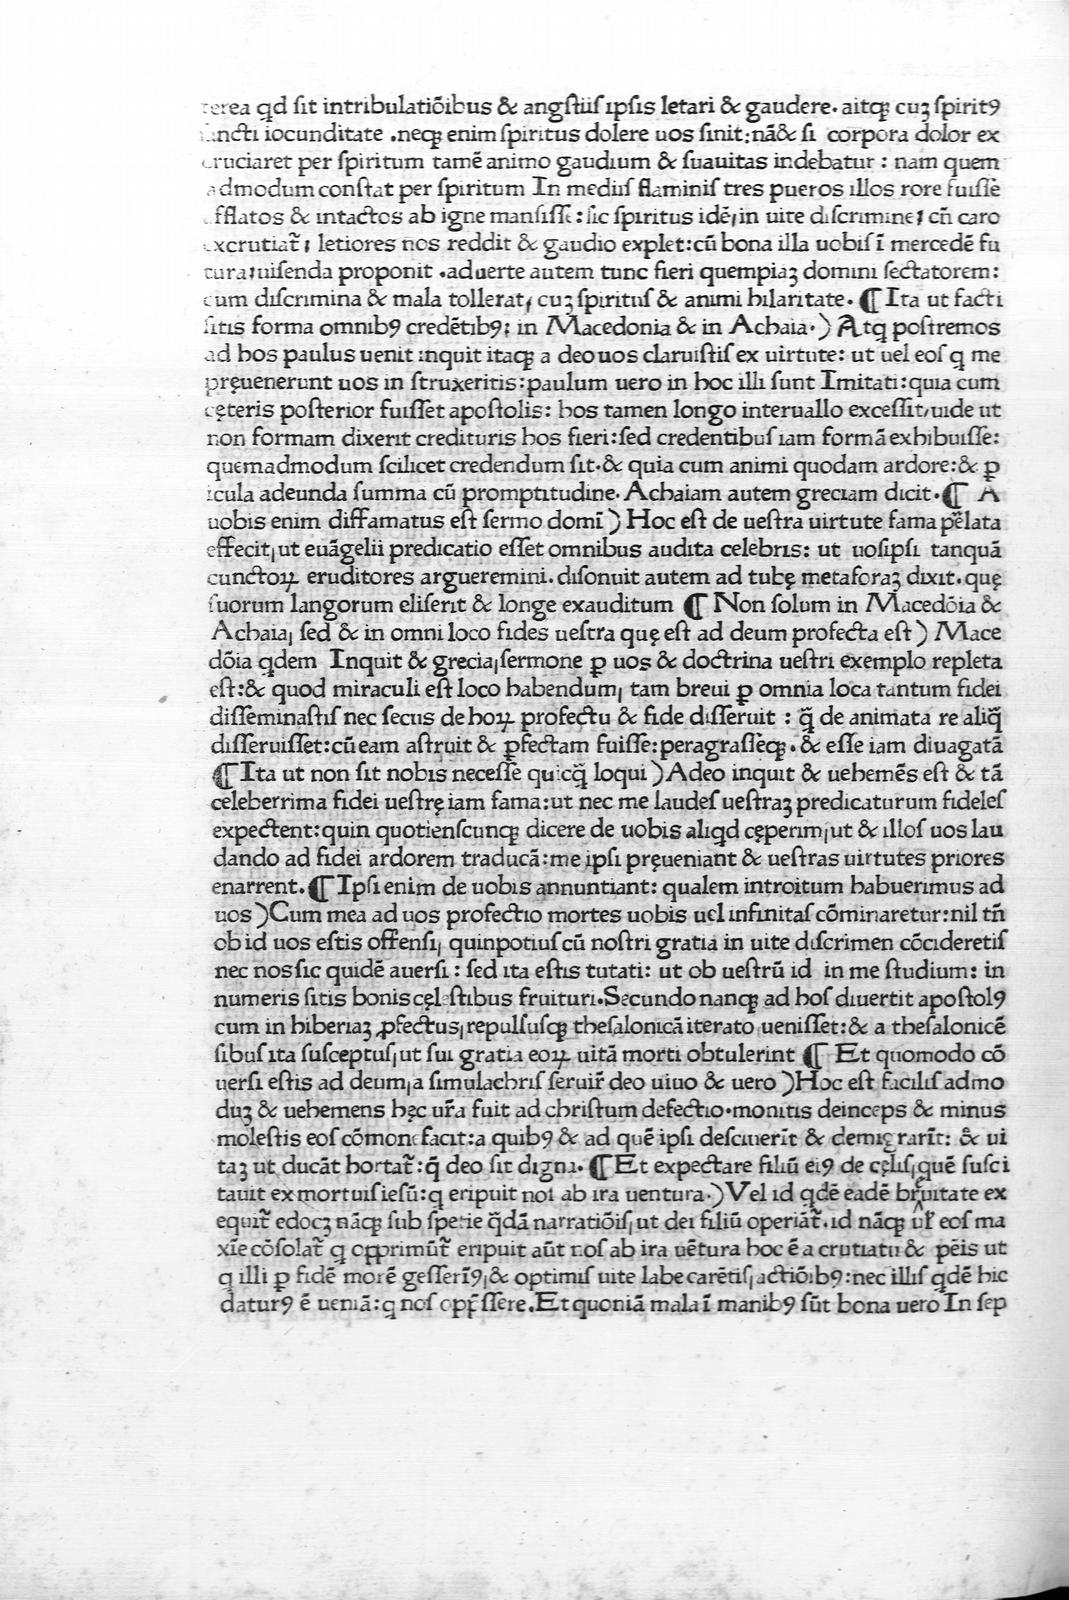 terea qd sit intribulatiõibus & angſtiiſ ıpſıs letari & gaudere. aitqꝫ cuꝫ ſpiritꝰ
ſancti iocunditate .neqꝫ enim ſpiritus dolere uos ſinit:nã& ſi corpora dolor ex
cruciaret per ſpiritum tamẽ animo gaudium & ſuauitas indebatur : nam quem
admodum conſtat per ſpiritum In mediiſ flaminiſ tres pueros illos rore fuiſſe
afflatos & intactos ab igne manſiſſe:ſic ſpiritus idẽ,in uite diſcrimine, cũ caro
excrutiat᷑, letiores nos reddit & gaudio explet:cũ bona illa uobiſ ĩ mercedẽ fu
tura,uiſenda proponit .aduerte autem tunc fieri quempiaꝫ domini ſectatorem:
cum diſcrimina & mala tollerat, cuꝫ ſpirituſ & animi hilaritate. ¶ Ita ut facti
ſitis forma omnibꝰ credẽtibꝰ: in Macedonia & in Achaia.) Atqꝫ poſtremos
ad hos paulus uenit inquit itaqꝫ a deo uos claruiſtiſ ex uirtute: ut uel eoſ q me
pręuenerunt uos in ſtruxeritis:paulum uero in hoc illi ſunt Imitati:quia cum
cęteris poſterior fuiſſet apoſtolis: hos tamen longo interuallo exceſſit,uide ut
non formam dixerit credituris hos fieri:ſed credentibuſ iam formã exhibuiſſe:
quemadmodum ſcilicet credendum ſit.& quia cum animi quodam ardore:& ꝑ
icula adeunda ſumma cũ promptitudine. Achaiam autem greciam dicit.¶ A
uobis enim diffamatus eſt ſermo domĩ) Hoc eſt de ueſtra uirtute fama p̃elata
effecit,ut euãgelii predicatio eſſet omnibus audita celebris: ut uoſipſi tanquã
cunctoꝝ eruditores argueremini. diſonuit autem ad tubę metaforaꝫ dixit. quę
ſuorum langorum eliſerit & longe exauditum ¶ Non ſolum in Macedõia &
Achaia, ſed & in omni loco fides ueſtra quę eſt ad deum profecta eſt) Mace
dõia qdem Inquit & grecia,ſermone ꝑ uos & doctrina ueſtri exemplo repleta
eſt:& quod miraculi eſt loco habendum, tam breui ꝑ omnia loca tantum fidei
diſſeminaſtiſ nec ſecus de hoꝝ profectu & fide diſſeruit : q̃ de animata re aliq̃
diſſeruiſſet:cũ eam aſtruit & ꝓfectam fuiſſe:peragraſſeqꝫ. & eſſe iam diuagatã
¶ Ita ut non ſit nobis neceſſe quicq̃ loqui) Adeo inquit & uehemẽs eſt & tã
celeberrima fidei ueſtrę iam fama:ut nec me laudeſ ueſtraꝫ predicaturum fideleſ
expectent:quin quotienſcunqꝫ dicere de uobis aliqd cęperim,ut & illoſ uos lau
dando ad fidei ardorem traducã:me ipſi pręueniant & ueſtras uirtutes priores
enarrent.¶ Ipſi enim de uobis annuntiant: qualem introitum habuerimus ad
uos )Cum mea ad uos profectio mortes uobis uel infinitaſ cõminaretur:nil tñ
ob id uos eſtis offenſi, quinpotiuſ cũ noſtri gratia in uite diſcrimen cõcideretiſ
nec nos ſic quidẽ auerſi : ſed ita eſtis tutati: ut ob ueſtrũ id in me ſtudium: in
numeris ſitis bonis cęleſtibus fruituri.Secundo nanqꝫ ad hoſ diuertit apoſtolꝰ
cum in hiberiaꝫ ꝓfectus,repulſuſqꝫ theſalonicã iterato ueniſſet:& a theſalonicẽ
ſibuſ ita ſuſceptuſ,ut ſui gratia eoꝝ uitã morti obtulerint ¶ Et quomodo cõ
uerſi eſtis ad deum,a ſimulachriſ ſeruir̃ deo uiuo & uero )Hoc eſt faciliſ admo
duꝫ & uehemens hęc ur̃a fuit ad chriſtum defectio.monitis deinceps & minus
moleſtis eoſ cõmonefacit:a quibꝰ & ad quẽ ipſi deſciuerĩt & demigrarĩt: & ui
taꝫ ut ducãt hortat᷑:q̃ deo ſit digna.¶ Et expectare filiũ eiꝰ de cęliſ,quẽ ſuſci
tauit ex mortuiſ ieſũ:q eripuit nos ab ira uentura.) Vel id qdẽ eadẽ breuitate ex
equit᷑ edocꝫ nãqꝫ ſub ſpetie q̃dã narratiõiſ,ut dei filiũ operiãt᷑.id nãqꝫ ur̃ eoſ ma
xĩe cõſolat᷑ q opprimũt᷑ eripuit aũt noſ ab ira uẽtura hoc ẽ a crutiatu & pẽis ut
q illi ꝑ fidẽ morẽ geſſerĩꝰ,& optimiſ uite labe carẽtiſ,actiõibꝰ:nec illiſ qdẽ hic
daturꝰ ẽ ueniã:q noſ opp̃ſſere.Et quoniã mala ĩ manibꝰ ſũt bona uero In ſep